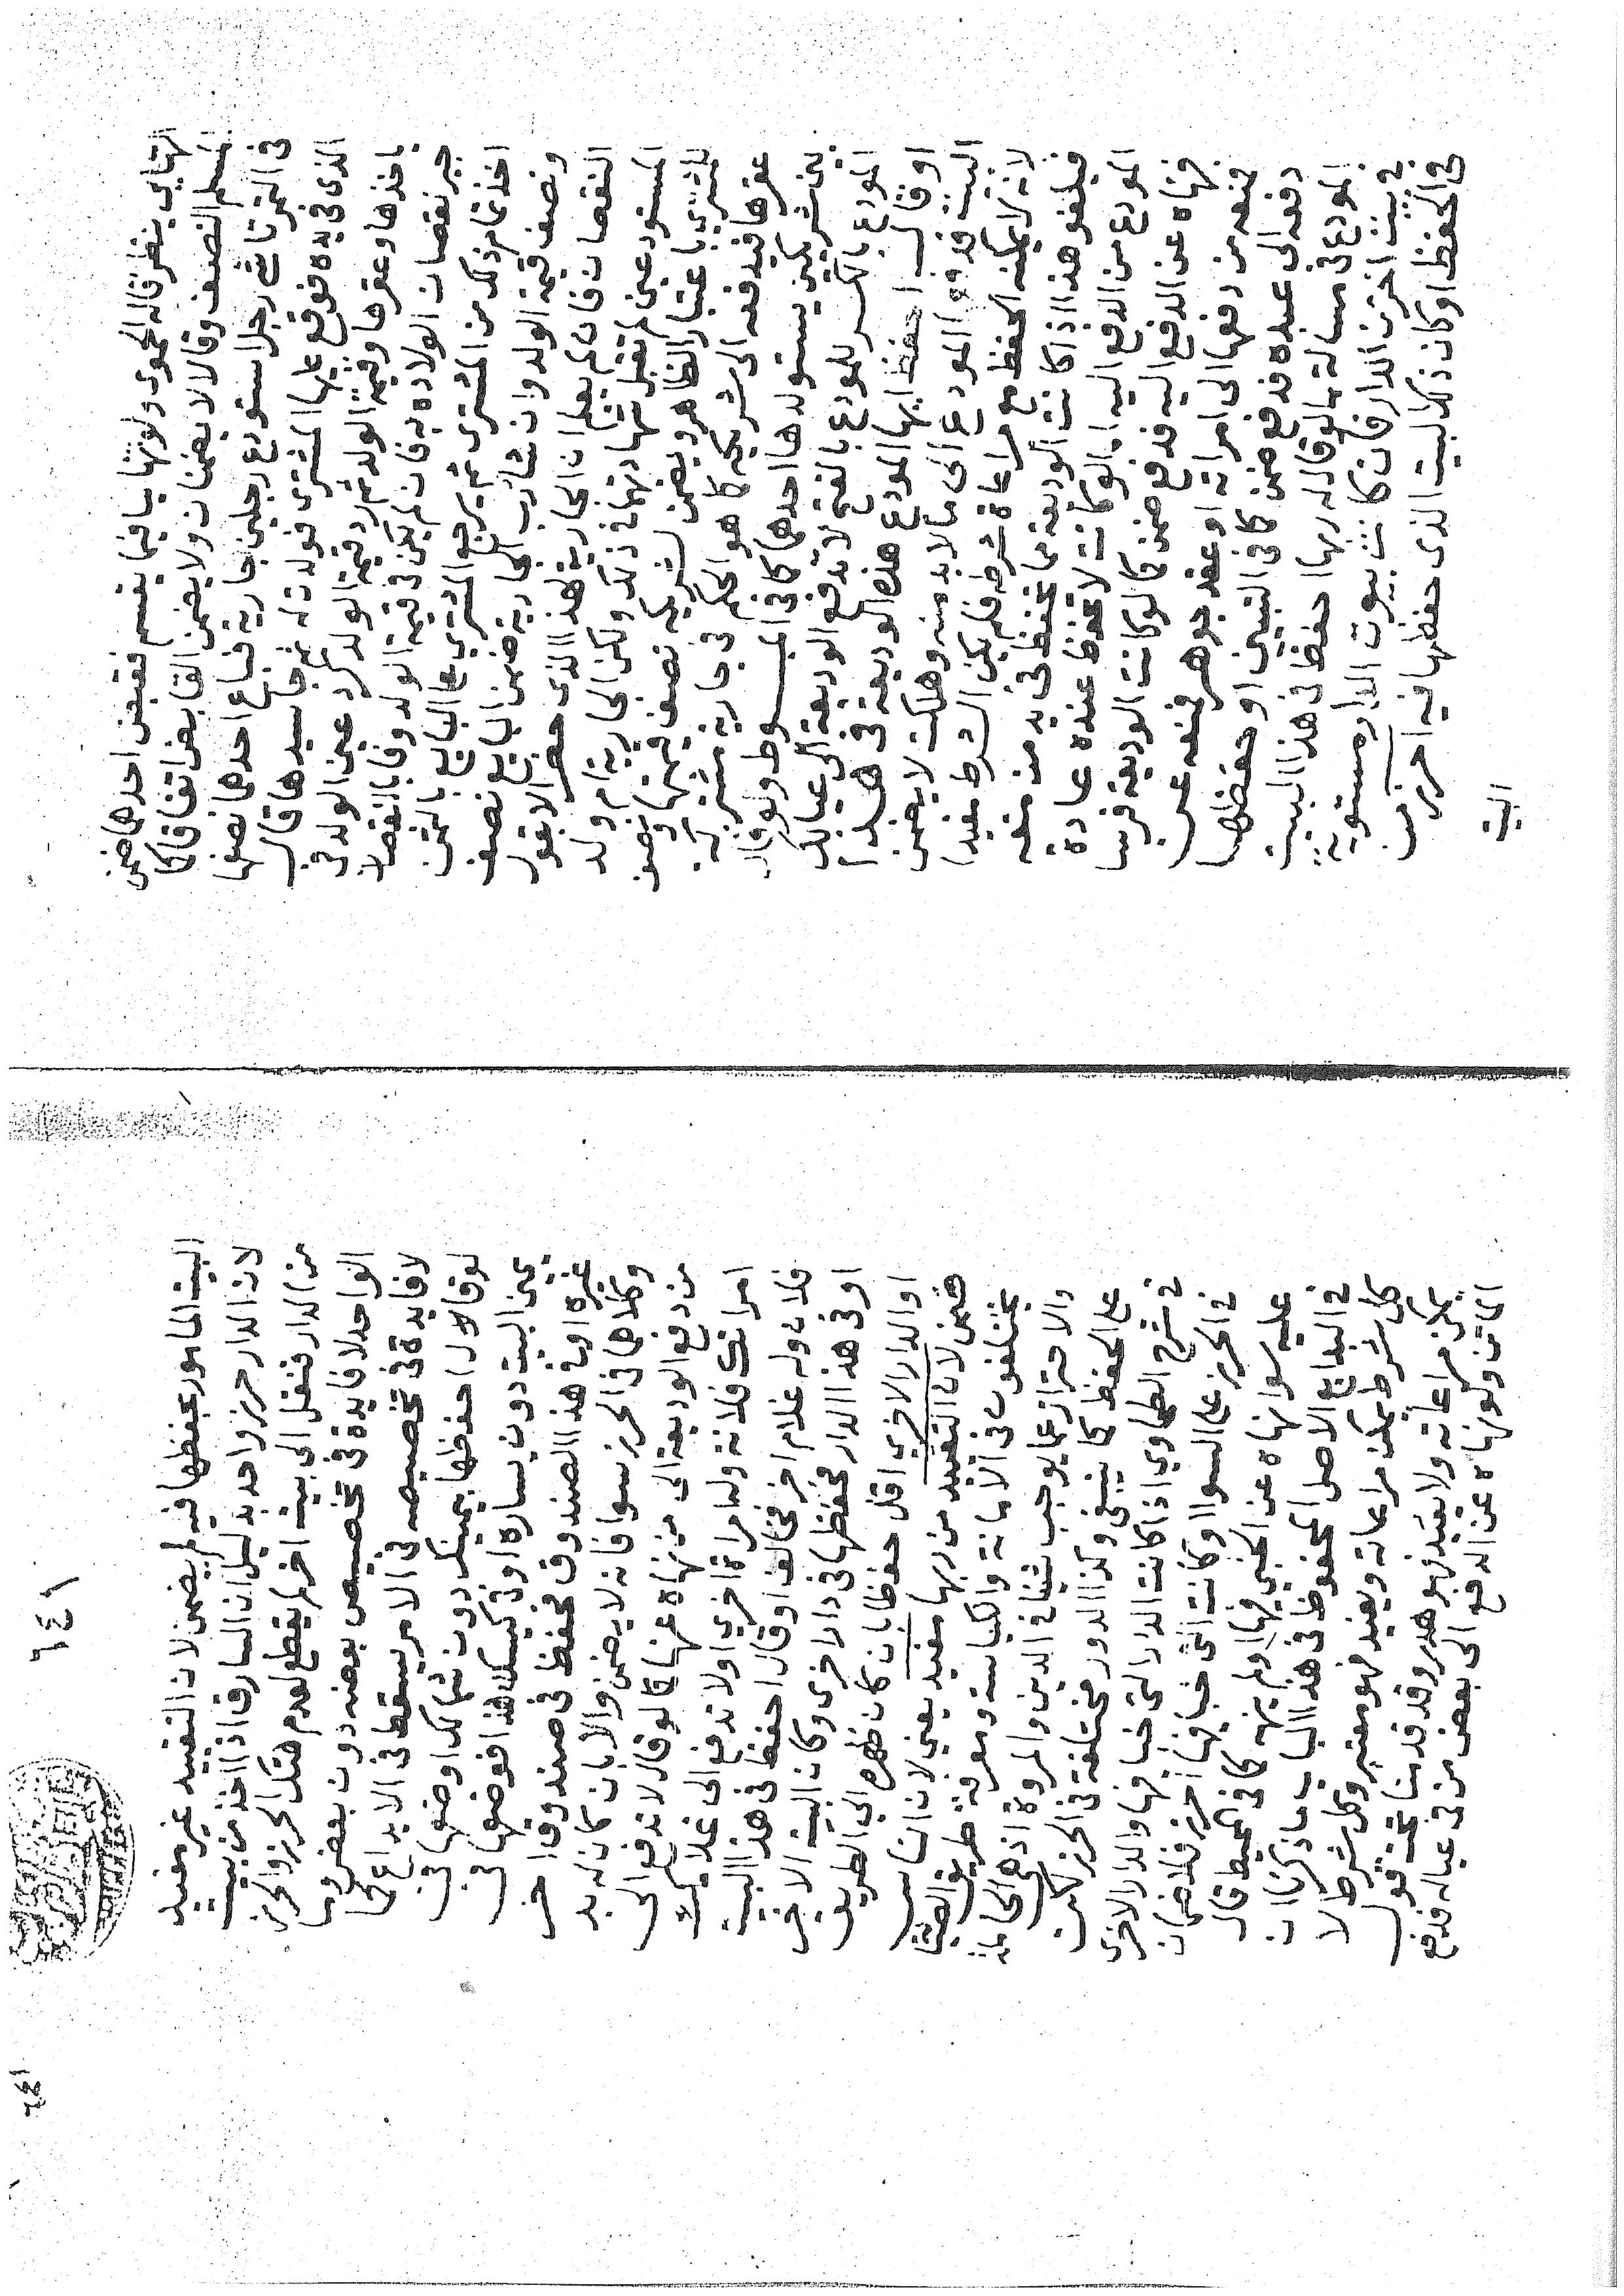 التهايي ينظر قاله الحموي ولو تهايا فيما يقسم فقبض احدهما ضمن
المسلم النصف وقالا لا يضمنان ولا يضمن القابض اتفاقا كما
في التمرتاشي رجل استودع رجلين جارية فباع احدهما نصفها
الذي في يده فوقع عليها المشتري فولدت له ثم جا سيدها قال
ياخذها وعقرها وقيمة الولد ثم رد قيمة الولد كرد عين الولد في
جبر نقصان الولادة به فان لم يكن في قيمة الولد وفا بالنقصان
اخذ تمام ذلك من المشتري ثم يرجع المشتري على البايع بالثمن
ونصف قيمة الولد وان شا رب الجارية ضمن البايع نصف
النقصان فان لم يعلم ان الجارية لهذا الذي حضر الا بقول
المستودعين لم تقبل شهادتهما في ذلك ولكن الجارية ام ولد
للمشتري باعتبار الظاهر ويضمن لشريكه نصف قيمتها ونصف
عقرها فيدفعه الى شريكه كما هو الحكم في جارية مشتركة
بين شريكين يستولدها احدهما كما في المبسوط ولو قال
المودع بالكسر للمودع بالفتح لا تدفع الوديعة الى عيالك
او قال احفظ ايها المودع هذه الوديعة في هذا
البيت فدفع المودع الى ما لا بد منه وهلكت لا يضمن
لانه لا يمكنه الحفظ مع مراعاة شرطه فلم يكن الشرط مفيدا
فيلغو هذا اذا كانت الوديعة مما تحفظ في يد من منعه
المودع من الدفع اليه اما لو كانت لا تحفظ عنده عادة
فنهاه عن الدفع اليه فدفع ضمن كما لو كانت الوديعة فرسا
فمنعه من دفعها الى امراته او عقد جوهر فمنعه عن
دفعه الى عبده فدفع ضمن كما في التبيين او حفظها
المودع في مسالة ما لو قال له ربها احفظ في هذا البيت
في بيت اخر من الدار فان كانت بيوت الدار مستوية
في الحفظ او كان ذلك البيت الذي حفظها فيه احرز من
البيت
البيت المامور بحفظها فيه لم يضمن لان التقييد غير مفيد
لان الدار حرز واحد بدليل ان السارق اذا اخذ من بيت
من الدار فنقل الى بيت اخر لم يقطع لعدم هتك الحرز والحرز
الواحد لا فايدة في تخصيص بعضه دون بعض وما
لا فايدة في تخصيصه في الامر يسقط في الايداع كما
لو قال احفظها بيمينك دون شمالك او ضعها في
يمين البيت دون يساره او في كيسك هذا فوضعها في
غيره او في هذا الصندوق فحفظ في صندوق اخر
وكلاهما في الحرز سوا فانه لا يضمن والا بان كان له بد
من دفع الوديعة الى من نهاه عنها كما لو قال لا تدفع الى
امراتك فلانة وله امراة اخرى او لا تدفع الى غلامك
فلان وله غلام اخر فخالف او قال احفظ في هذا البيت
او في هذا الدار فحفظها في دار اخرى وكان البيت الاخر
او الدار الاخرى اقل حفظا بان كان ظهره الى الطريق
ضمن لان التقييد من ربها مفيد يعني لان الناس
يختلفون في الامانة والكياسة ومعرفة طريق الصيانة
والاحتراز عما يوجب شينا في الدين والمروة اذ هي الحاملة
على الحفظ كما ينبغي وكذا الدور مختلفة في الحرز لكن
في شرح الطحاوي اذا كانت الدار التي خبا فيها والدار الاخرى
في الحرز على السوا او كانت التي خبا فيها احرز فلا ضمان
عليه سوا نهاه عن الخبي فيها او لم ينه كما في المحيط قال
في البدايع الاصل المحفوظ في هذا الباب ما ذكرنا ان
كل شرط يمكن مراعاته ويفيد فهو معتبر وكل شرط لا
يمكن مراعاته ولا يفيد فهو هدر وقد قدمنا تحت قول
الماتن ولو نهاه عن الدفع الى بعض من في عياله فدفع
٦٤١